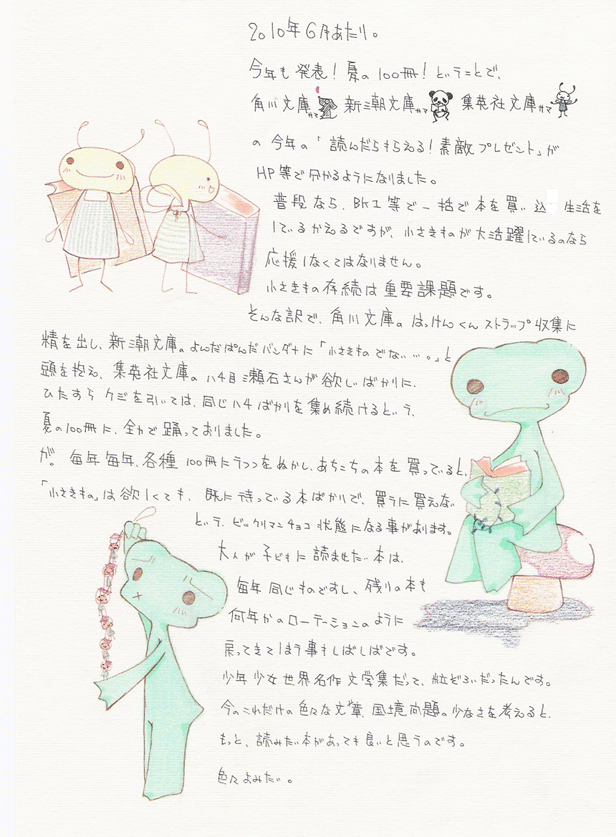 2010年6月あたり。
今年も発表！夏の100冊！ということで、
角川文庫サマ 新潮文庫サマ 集英社文庫サマ
の今年の「読んだらもらえる！素敵プレゼント」が
HP等で分かるようになりました。
普段なら、BK1等で一括で本を買い込 生活を
しているかえるですが、小さきものが大活躍しているのなら
応援しなくてはなりません。
小さきもの存続は重要課題です。
そんな訳で、角川文庫のはっけんくんストラップ収集に
精を出し、新潮文庫のよんだぱんだバンダナに「小さきものでない…。」と
頭を抱え、集英社文庫のハチ目瀬石さんが欲しいばかりに、
ひたすらクジを引いては、同じハチばかりを集め続けるという、
夏の100冊に、全力で踊っておりました。
が。毎年毎年、各種100冊にうつつをぬかし、あちこちの本を買っていると、
「小さきもの」は欲しくても、既に持っている本ばかりで、買うに買えない
というビックリマンチョコ状態になる事があります。
大人が子どもに読ませたい本は、
毎年同じものですし、残りの本も
何年かのローテーションのように
戻ってきてしまう事もしばしばです。
少年少女世界名作文学集だって、粒ぞろいだったんです。
今のこれだけの色々な文章、国境問題。少なさを考えると、
もっと、読みたい本があっても良いと思うのです。
色々よみたい。